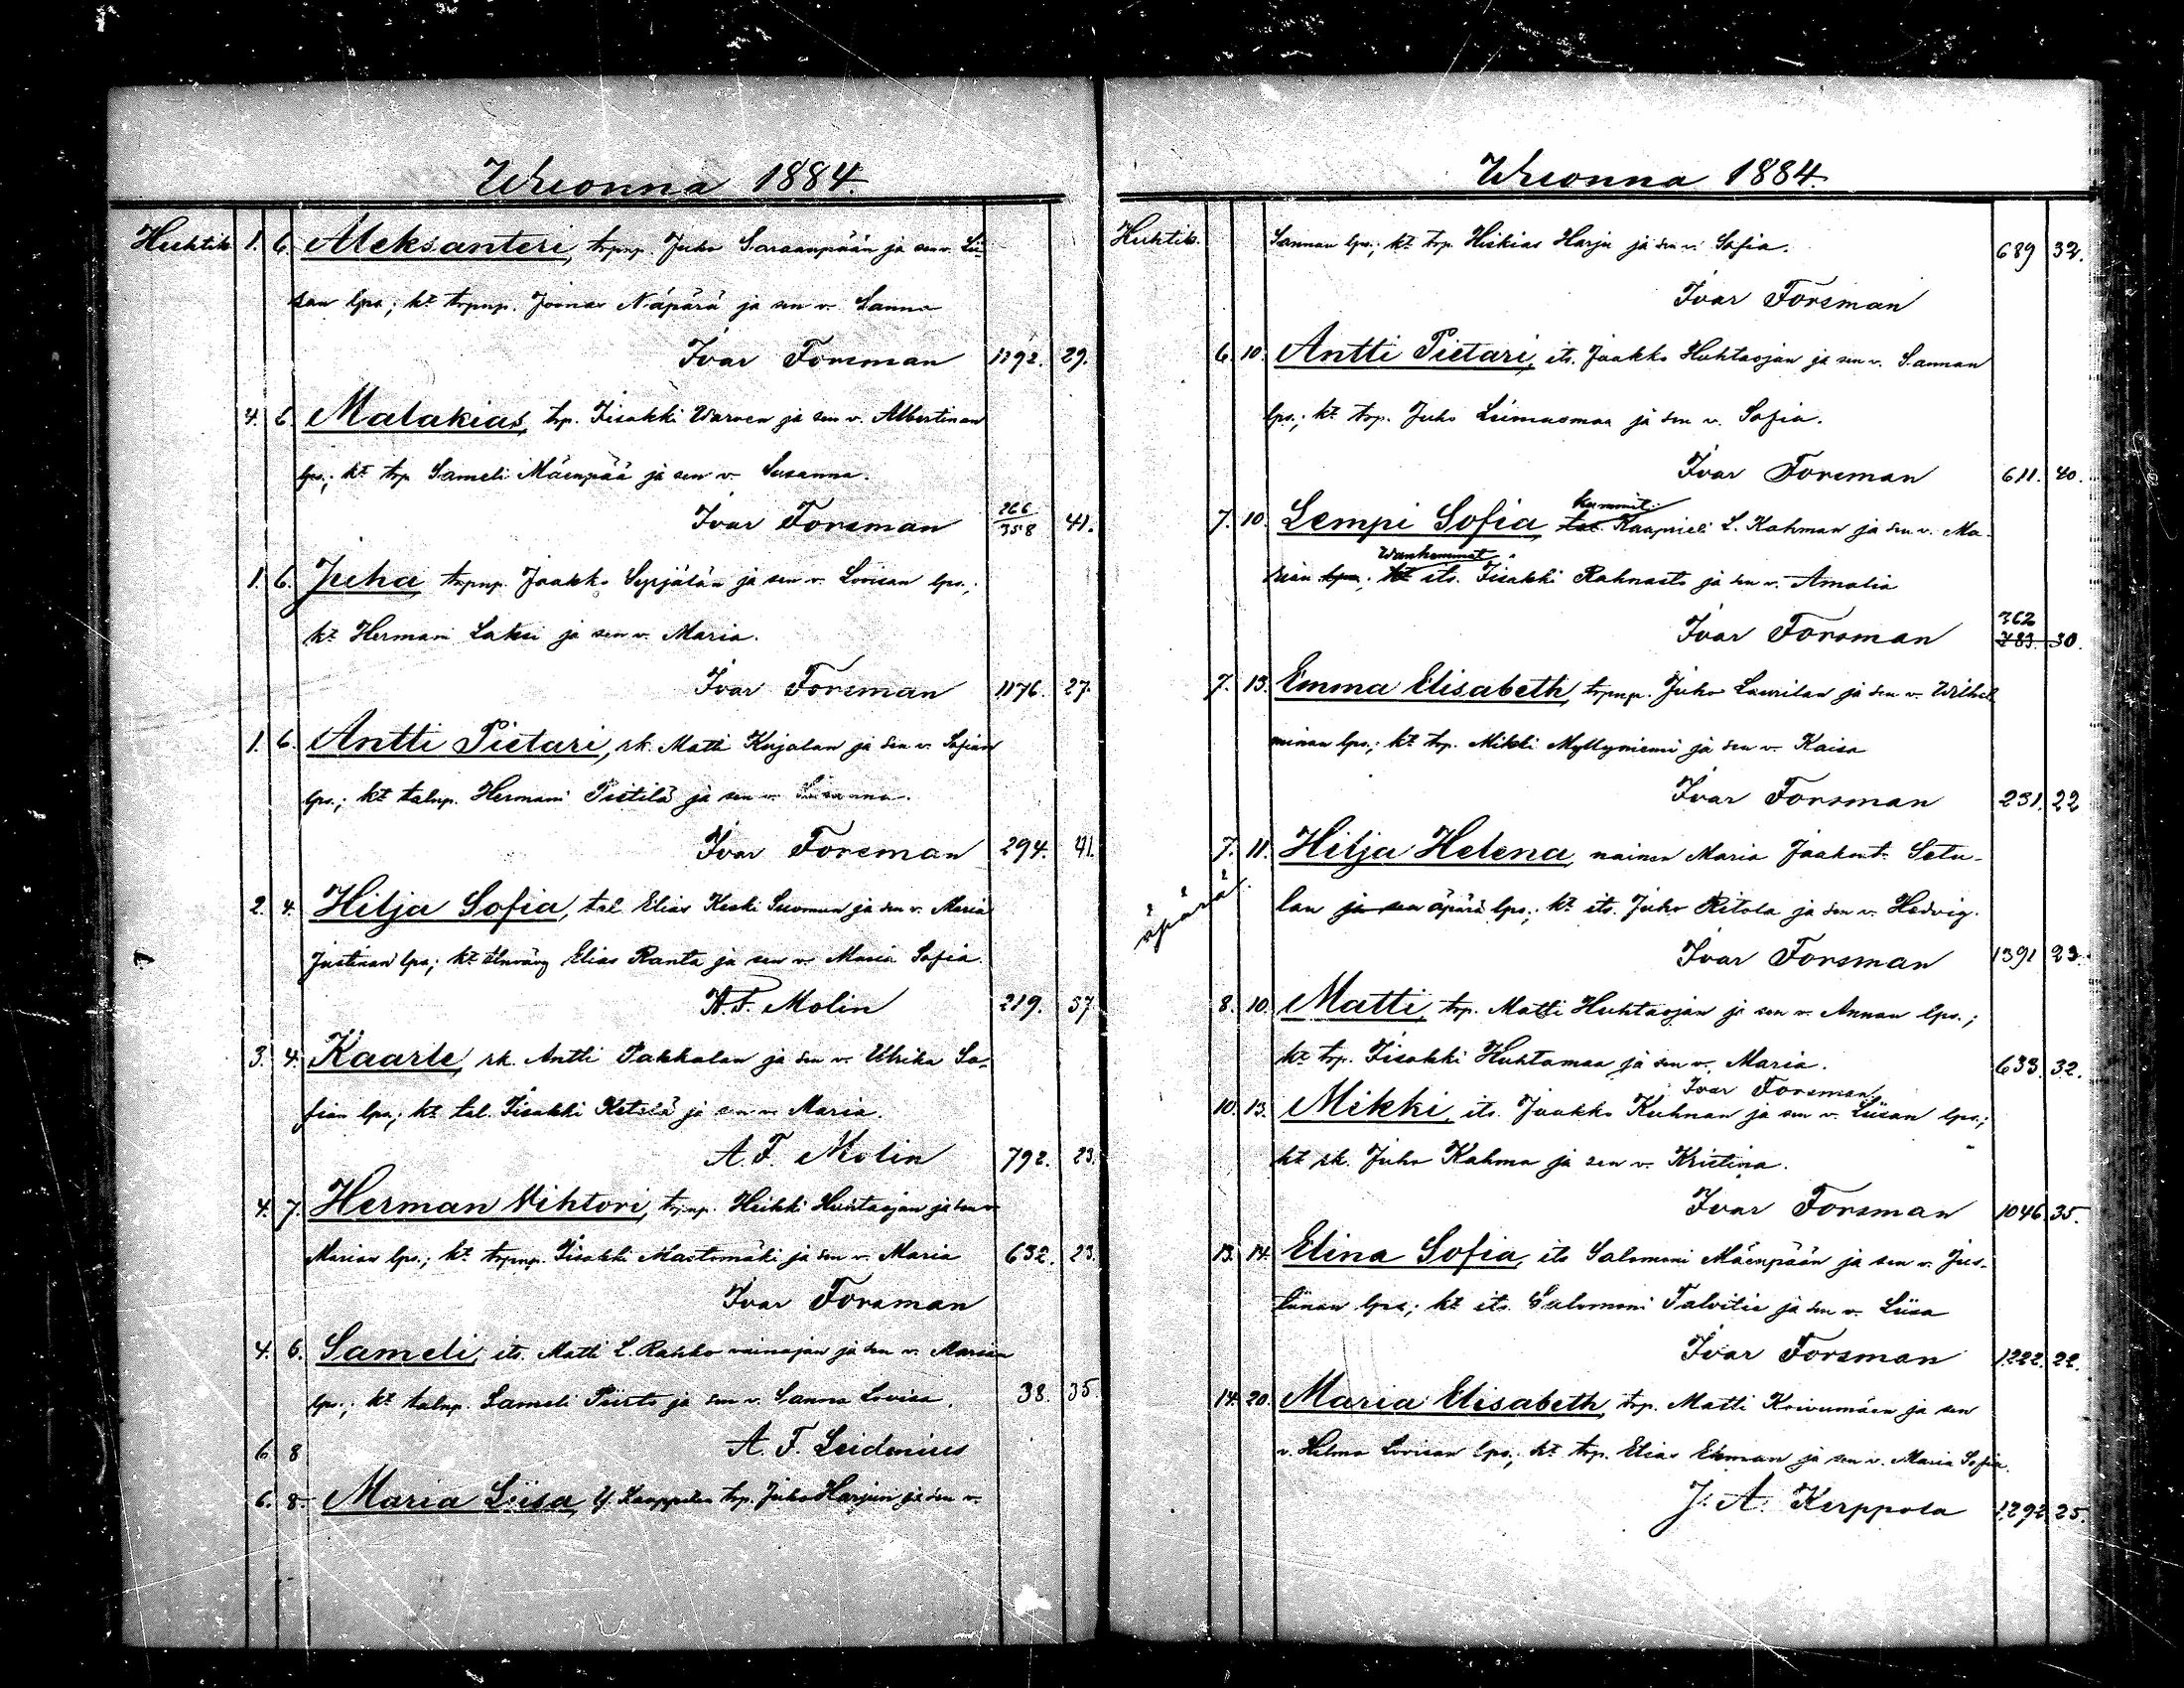 Wuonna 1884.
Huhtik. 1. 6. Aleksanteri, trpnp. Juho Saraanpään ja sen v. Lii-
san lps; kt trpnp. Joonas Näpärä ja sen v. Sanna
Ivar Forsman 1192. 29.
4. 6. Malakias, trp. Iisakki Warven ja sen v. Albertinan
lps.; kt trp Sameli Mäenpää ja sen v. Susanna.
Ivar Forsman 266/358 41.
1. 6. Juha, trpnp. Jaakko Syrjälän ja sen v. Lovisan lps.;
kt Hermani Laksi ja sen v. Maria.
Ivar Forsman 1176. 27.
1. 6. Antti Pietari, rk. Matti Kujalan ja sen v. Sofian
lps.; kt talnp. Hermani Pietilä ja sen v.
Ivar Forsman 294. 41.
2. 4. Hilja Sofia, tal Elias Keski Suomun ja sen v. Maria
Justinan lps; kt Elias Ranta ja sen v. Maria Sofia.
A. F. Molin 219. 37.
3. 4. Kaarle, rk. Antti Pakkalan ja sen v. Ulrika So-
fian lps; kt tal. Iisakki Ketelä ja sen v. Maria.
A. F. Molin 792. 23.
4. 7. Herman Vihtori, trpnp. Heikki Huhtaojan ja sen v
Marian lps.; kt trpnp. Iisakki Mastomäki ja sen v. Maria 632. 23.
Ivar Forsman
4. 6. Sameli, its. Matti L. Rahko vainajan ja sen v. Marian
lps.; kt talnp. Sameli Piirto ja sen v. Sanna Lovisa. 38. 35.
6 8 A. F. Leidenius
6. 8. Maria Liisa, Y. Kauppilan trp. Juho Harjun ja sen v.
Wuonna 1884.
Huhtik. Sannan lps.; kt trp. Hiskias Harju ja sen v. Sofia. 689 32.
Ivar Forsman
6. 10. Antti Pietari, its. Jaakko Huhtaojan ja sen v. Sannan
lps.; kt trp. Juho Liimusmaa ja sen v. Sofia.
Ivar Forsman 611. 40.
kummit.
7. 10. Lempi Sofia, tal. Kaaprieli L. Kahman ja sen v. Ma-
Wanhemmat
rian lps; kt its. Iisakki Rahnasto ja sen v. Amalia
362
Ivar Forsman 783. 30.
7. 13. Emma Elisabeth, trpnp. Juho Laurilan ja sen v. Wilhel-
minan lps.; kt trp. Mikki Myllyniemi ja sen v. Kaisa
Ivar Forsman 231. 22
7. 11. Hilja Helena, nainen Maria Jaakont. Setu-
äpärä. lan ja sen äpärä lps.; kt its. Juho Ritola ja sen v. Hedvig.
Ivar Forsman 1391 23.
8. 10. Matti, trp. Matti Huhtaojan ja sen v. Annan lps.;
kt trp. Iisakki Huhtamaa ja sen v. Maria. 633. 32.
Ivar Forsman.
10. 13. Mikki, its. Jaakko Kuhnan ja sen v. Liisan lps.;
kt rk. Juho Kahma ja sen v. Kristina.
Ivar Forsman 1046 35.
13. 14. Elina Sofia, its Salomoni Mäenpään ja sen v. Jus-
tiinan lps; kt its. Salomoni Talvitie ja sen v. Liisa
Ivar Forsman 1222. 22.
14. 20. Maria Elisabeth, trp. Matti Koivumäen ja sen
v. Helma Lovisan lps.; kt trp. Elias Ekman ja sen v. Maria Sofia.
J. A. Kerppola 1292 25.